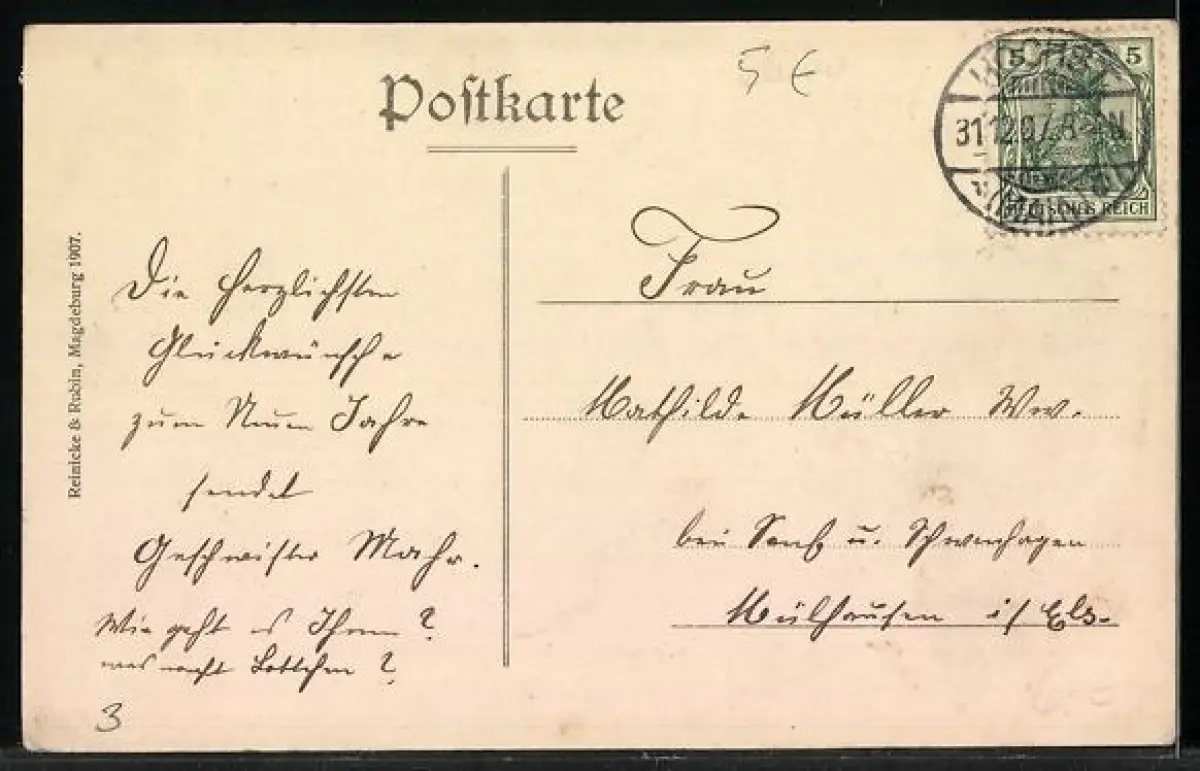 Postkarte
5 €
5 5
HÖCHST
31.12.07. 8-9N
(MAIN)
DEUTSCHES REICH
Reinicke & Rubin, Magdeburg 1907.
Die herzlichsten
Glückwünsche
zum Neuen Jahre
sendet
Geschwister Mahr.
Wie geht es Ihnen?
was macht Lottchen?
3
Frau
Mathilde Müller Ww.
bei u.
Mülhausen i/Els.